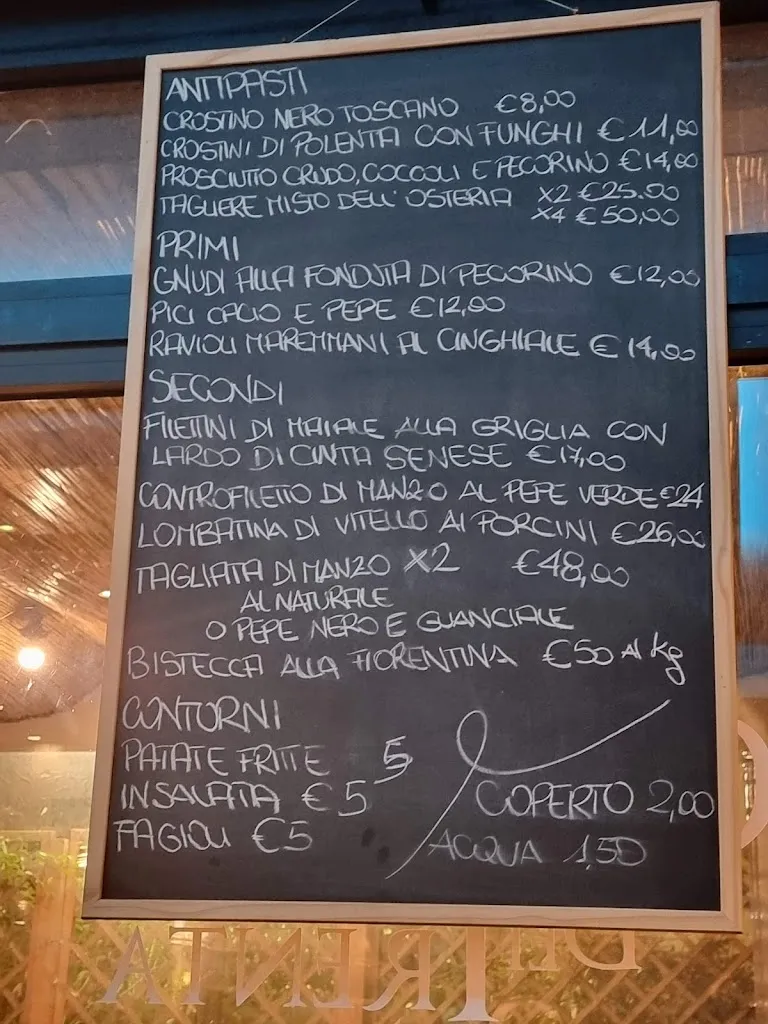 ANTIPASTI
CROSTINO NERO TOSCANO €8,00
CROSTINI DI POLENTA CON FUNGHI €11,00
PROSCIUTTO CRUDO, COCCOLI E PECORINO €14,00
TAGLIERE MISTO DELL'OSTERIA X2 €25.00
X4 €50,00
PRIMI
GNUDI ALLA FONDUTA DI PECORINO €12,00
PICI CACIO E PEPE €12,00
RAVIOLI MAREMMANI AL CINGHIALE €14,00
SECONDI
FILETTINI DI MAIALE ALLA GRIGLIA CON
LARDO DI CINTA SENESE €17,00
CONTROFILETTO DI MANZO AL PEPE VERDE €24
LOMBATINA DI VITELLO AI PORCINI €26,00
TAGLIATA DI MANZO X2 €48,00
AL NATURALE
O PEPE NERO E GUANCIALE
BISTECCA ALLA FIORENTINA €50 Al Kg
CONTORNI
PATATE FRITTE 5
INSALATA €5
FAGIOLI €5
COPERTO 2,00
ACQUA 1,50
DEI TRENTA